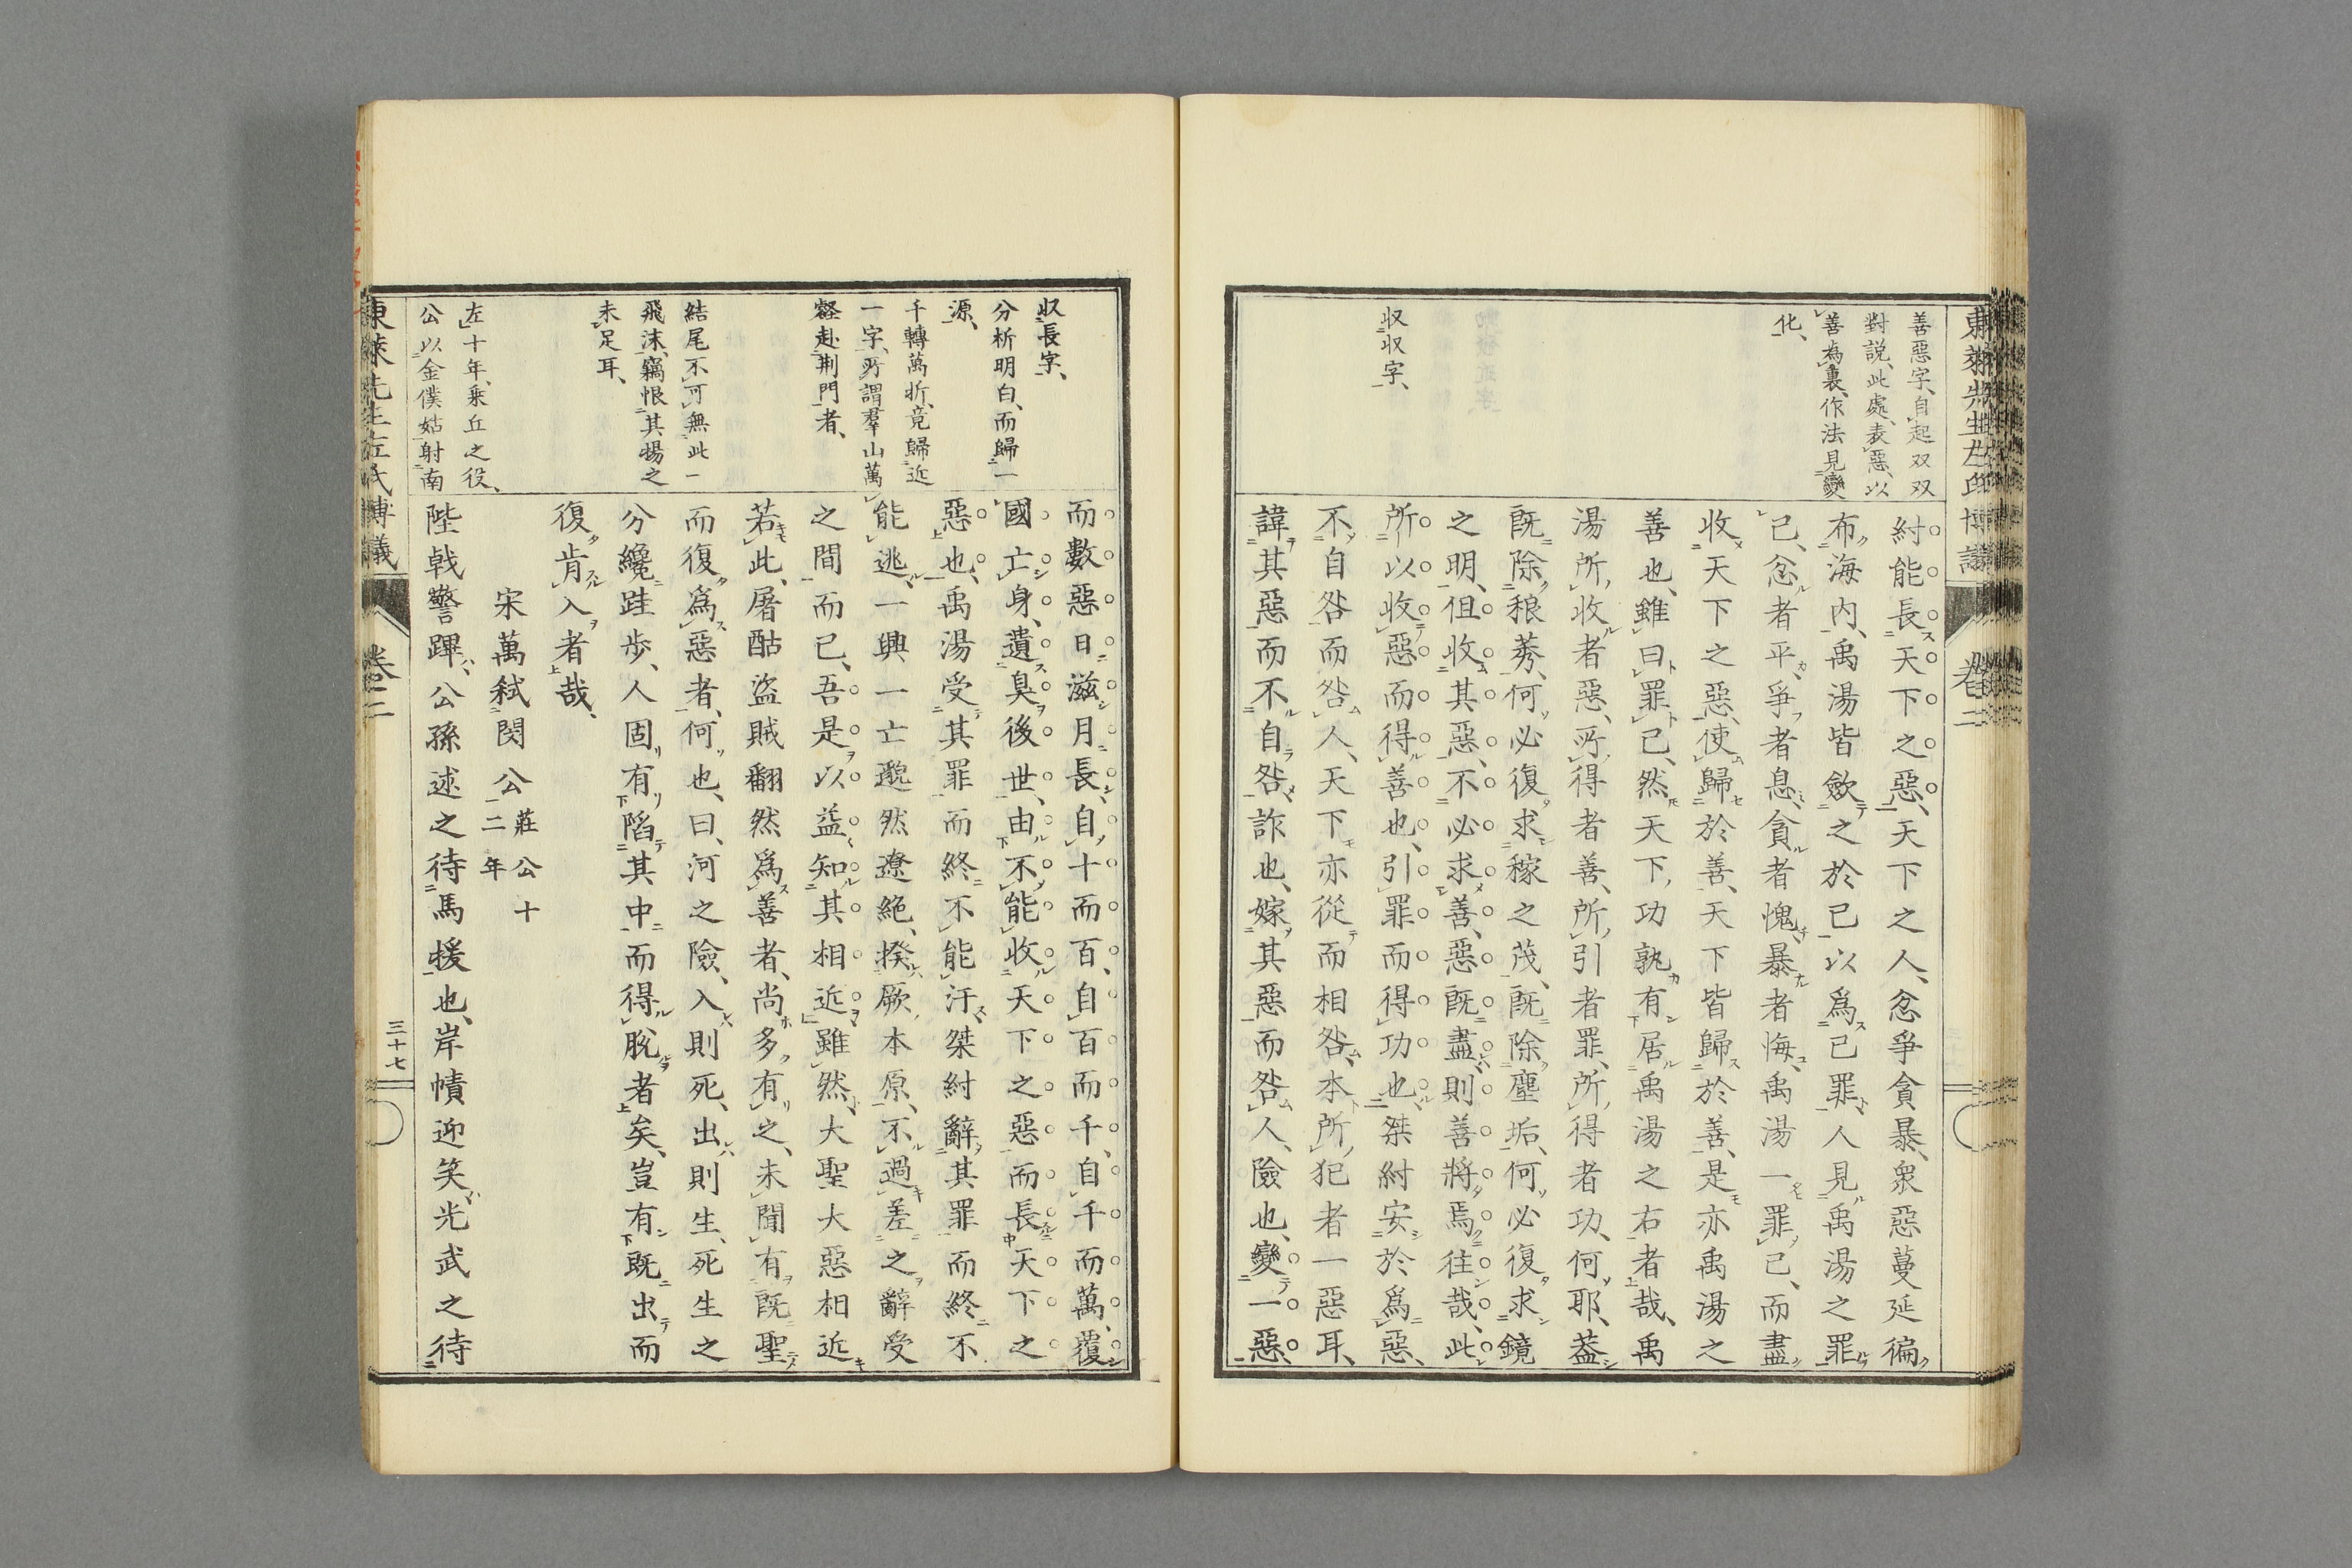 東萊先生左氏博議
卷二
善惡字、自起双双
對説、此處表惡、以
善為裏、作法見變
化、
収収字、
紂能長天下之惡、天下之人、忿爭貪暴、衆惡蔓延徧
布海內、禹湯皆斂之於已以爲己罪、人見禹湯之罪
己、忿者平、爭者息、貪者愧、暴者悔、禹湯一罪己、而盡
收天下之惡、使歸於善、天下皆歸於善、是亦禹湯之
善也、雖曰罪己、然天下、功孰有居禹湯之右者哉、禹
湯所收者惡、所得者善、所引者罪、所得者功、何耶、葢
旣除稂莠、何必復求稼之茂、旣除塵垢、何必復求鏡
之明、伹收其惡、不必求善、惡旣盡、則善將焉往哉、此
所以收惡而得善也、引罪而得功也、桀紂安於爲惡、
不自咎而咎人、天下亦從而相咎、本所犯者一惡耳、
諱其惡而不自咎、詐也、嫁其惡而咎人、險也、變一惡、
収長字、
分析明白、而歸一
源、
千轉萬折、竟歸近
一字、所謂羣山萬
壑赴荆門者、
結尾不可無此一
飛沫、竊恨其揚之
未足耳、
左十年、乗丘之役、
公以金僕姑射南
而數惡日滋月長、自十而百、自百而千、自千而萬、覆
國亡身、遺臭後世、由不能收天下之惡而長天下之
惡也、禹湯受其罪而終不能汙、桀紂辭其罪而終不
能逃、一興一亡邈然遼絶、揆厥本原、不過差之辭受
之間而已、吾是以益知其相近、雖然、大聖大惡相近
若此、屠酤盜賊翻然爲善者、尚多有之、未聞有旣聖
而復爲惡者、何也、曰、河之險、入則死、出則生、死生之
分纔跬歩、人固有陷其中而得脫者矣、豈有旣出而
復肯入者哉、
宋萬弑閔公 莊公十
二年
陛戟警蹕、公孫述之待馬援也、岸幘迎笑、光武之待
東萊先生左氏博議
卷二
三十七